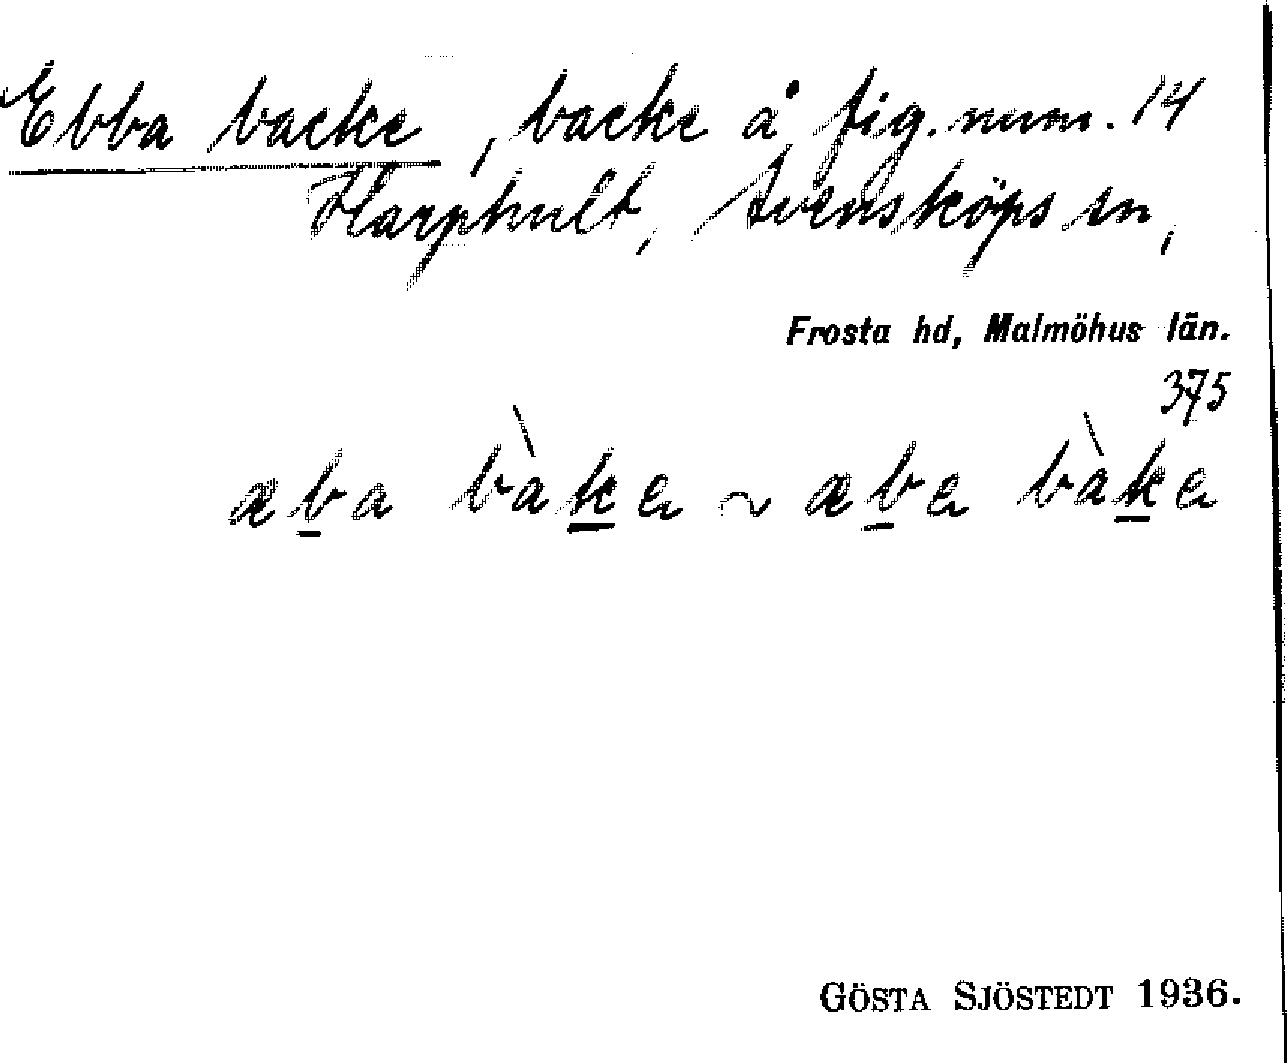 Ebba backe, backe å fig. num. 14
Harphult, Svensköps sn,
Frosta hd, Malmöhus län.
375
æba bàkɐ ~ æbɐ bàkɐ
GÖSTA SJÖSTEDT 1936.